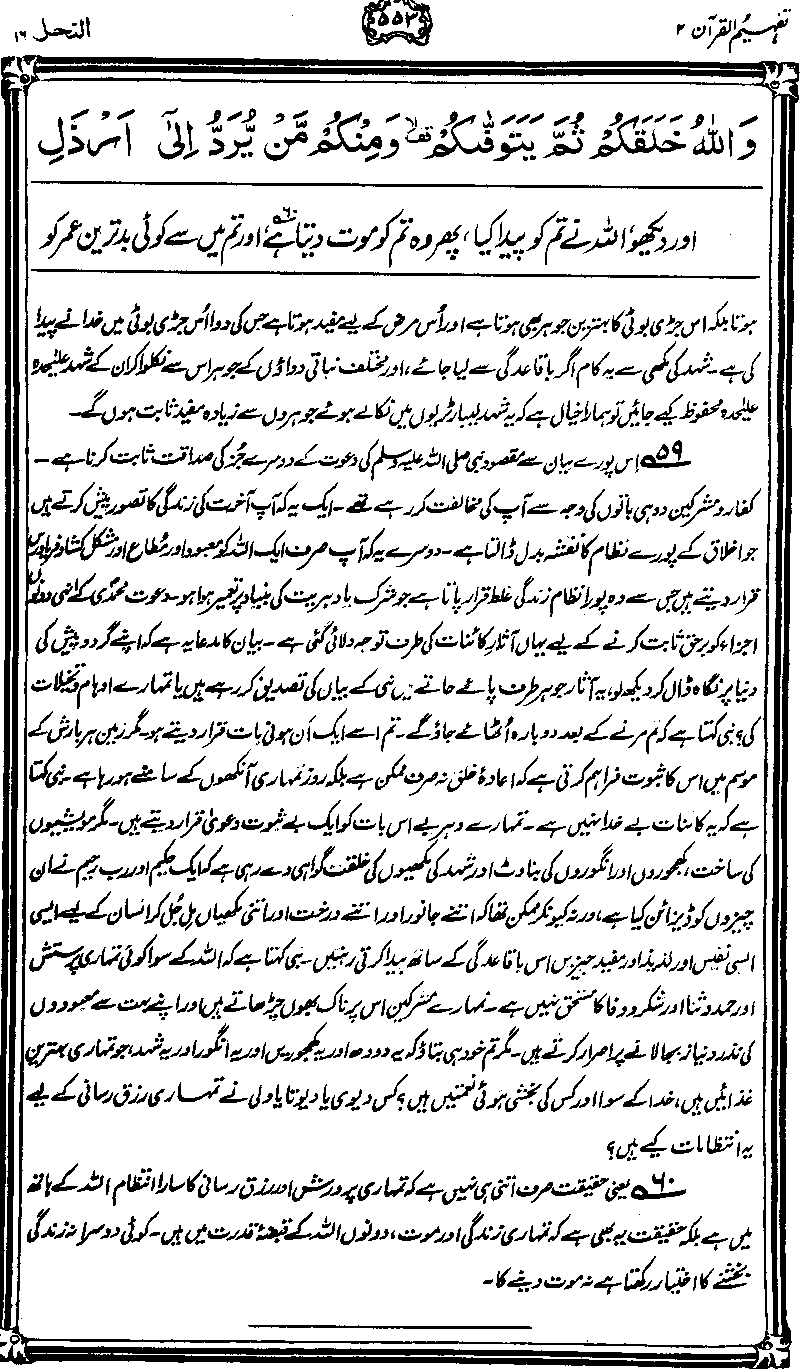 تفہیم القرآن ۲
۵۵۳
النحل ۱۶
وَاللّٰهُ خَلَقَكُمْ ثُمَّ يَتَوَفّٰىكُمْ ۙ وَمِنْكُمْ مَّنْ يُّرَدُّ اِلٰٓى اَرْذَلِ
اور دیکھو، اللہ نے تم کو پیدا کیا، پھر وہ تم کو موت دیتا ہے،۶۰ اور تم میں سے کوئی بدترین عمر کو
ہوتا بلکہ اس جڑی بوٹی کا بہترین جوہر بھی ہوتا ہے اور اُس مرض کے لیے مفید ہوتا ہے جس کی دوا اُس جڑی بوٹی میں خدا نے پیدا
کی ہے۔ شہد کی مکھی سے یہ کام اگر باقاعدگی سے لیا جائے، اور مختلف نباتی دواؤں کے جوہر اس سے نکلوا کر ان کے شہد علیحدہ
علیحدہ محفوظ کیے جائیں تو ہمارا خیال ہے کہ یہ شہد لیبارٹریوں میں نکالے ہوئے جوہروں سے زیادہ مفید ثابت ہوں گے۔
۵۹ اِس پورے بیان سے مقصود نبی صلی اللہ علیہ وسلم کی دعوت کے دوسرے جُز کی صداقت ثابت کرنا ہے۔
کفار و مشرکین دو ہی باتوں کی وجہ سے آپ کی مخالفت کر رہے تھے۔ ایک یہ کہ آپ آخرت کی زندگی کا تصور پیش کرتے ہیں
جو اخلاق کے پورے نظام کا نقشہ بدل ڈالتا ہے۔ دوسرے یہ کہ آپ صرف ایک اللہ کو معبود اور مُطاع اور مشکل کشا و فریادرس
قرار دیتے ہیں جس سے وہ پورا نظام زندگی غلط قرار پاتا ہے جو شرک یا دہریت کی بنیاد پر تعمیر ہوا ہو۔ دعوت محمدی کے انہی دونوں
اجزاء کو برحق ثابت کرنے کے لیے یہاں آثار کائنات کی طرف توجہ دلائی گئی ہے۔ بیان کا مدعا یہ ہے کہ اپنے گرد و پیش کی
دنیا پر نگاہ ڈال کر دیکھ لو، یہ آثار جو ہر طرف پائے جاتے ہیں نبی کے بیان کی تصدیق کر رہے ہیں یا تمہارے اوہام و تخیلات
کی؟ نبی کہتا ہے کہ تم مرنے کے بعد دوبارہ اُٹھائے جاؤ گے۔ تم اسے ایک اَن ہونی بات قرار دیتے ہو۔ مگر زمین ہر بارش کے
موسم میں اس کا ثبوت فراہم کرتی ہے کہ اعادۂ خلق نہ صرف ممکن ہے بلکہ روز تمہاری آنکھوں کے سامنے ہو رہا ہے۔ نبی کہتا
ہے کہ یہ کائنات بے خدا نہیں ہے۔ تمہارے دہریے اس بات کو ایک بے ثبوت دعویٰ قرار دیتے ہیں۔ مگر مویشیوں
کی ساخت، کھجوروں اور انگوروں کی بناوٹ اور شہد کی مکھیوں کی خلقت گواہی دے رہی ہے کہ ایک حکیم اور رب رحیم نے ان
چیزوں کو ڈیزائن کیا ہے، ورنہ کیونکر ممکن تھا کہ اتنے جانور اور اتنے درخت اور اتنی مکھیاں مل جُل کر انسان کے لیے ایسی
ایسی نفیس اور لذیذ اور مفید چیزیں اس باقاعدگی کے ساتھ پیدا کرتی رہتیں۔ نبی کہتا ہے کہ اللہ کے سوا کوئی تمہاری پرستش
اور حمد و ثنا اور شکر و وفا کا مستحق نہیں ہے۔ تمہارے مشرکین اس پر ناک بھوں چڑھاتے ہیں اور اپنے بہت سے معبودوں
کی نذر و نیاز بجا لانے پر اصرار کرتے ہیں۔ مگر تم خود ہی بتاؤ کہ یہ دودھ اور یہ کھجوریں اور یہ انگور اور یہ شہد، جو تمہاری بہترین
غذائیں ہیں، خدا کے سوا اور کس کی بخشی ہوئی نعمتیں ہیں؟ کس دیوی یا دیوتا یا ولی نے تمہاری رزق رسانی کے لیے
یہ انتظامات کیے ہیں؟
۶۰ یعنی حقیقت صرف اتنی ہی نہیں ہے کہ تمہاری پرورش اور رزق رسانی کا سارا انتظام اللہ کے ہاتھ
میں ہے بلکہ حقیقت یہ بھی ہے کہ تمہاری زندگی اور موت، دونوں اللہ کے قبضۂ قدرت میں ہیں۔ کوئی دوسرا نہ زندگی
بخشنے کا اختیار رکھتا ہے نہ موت دینے کا۔